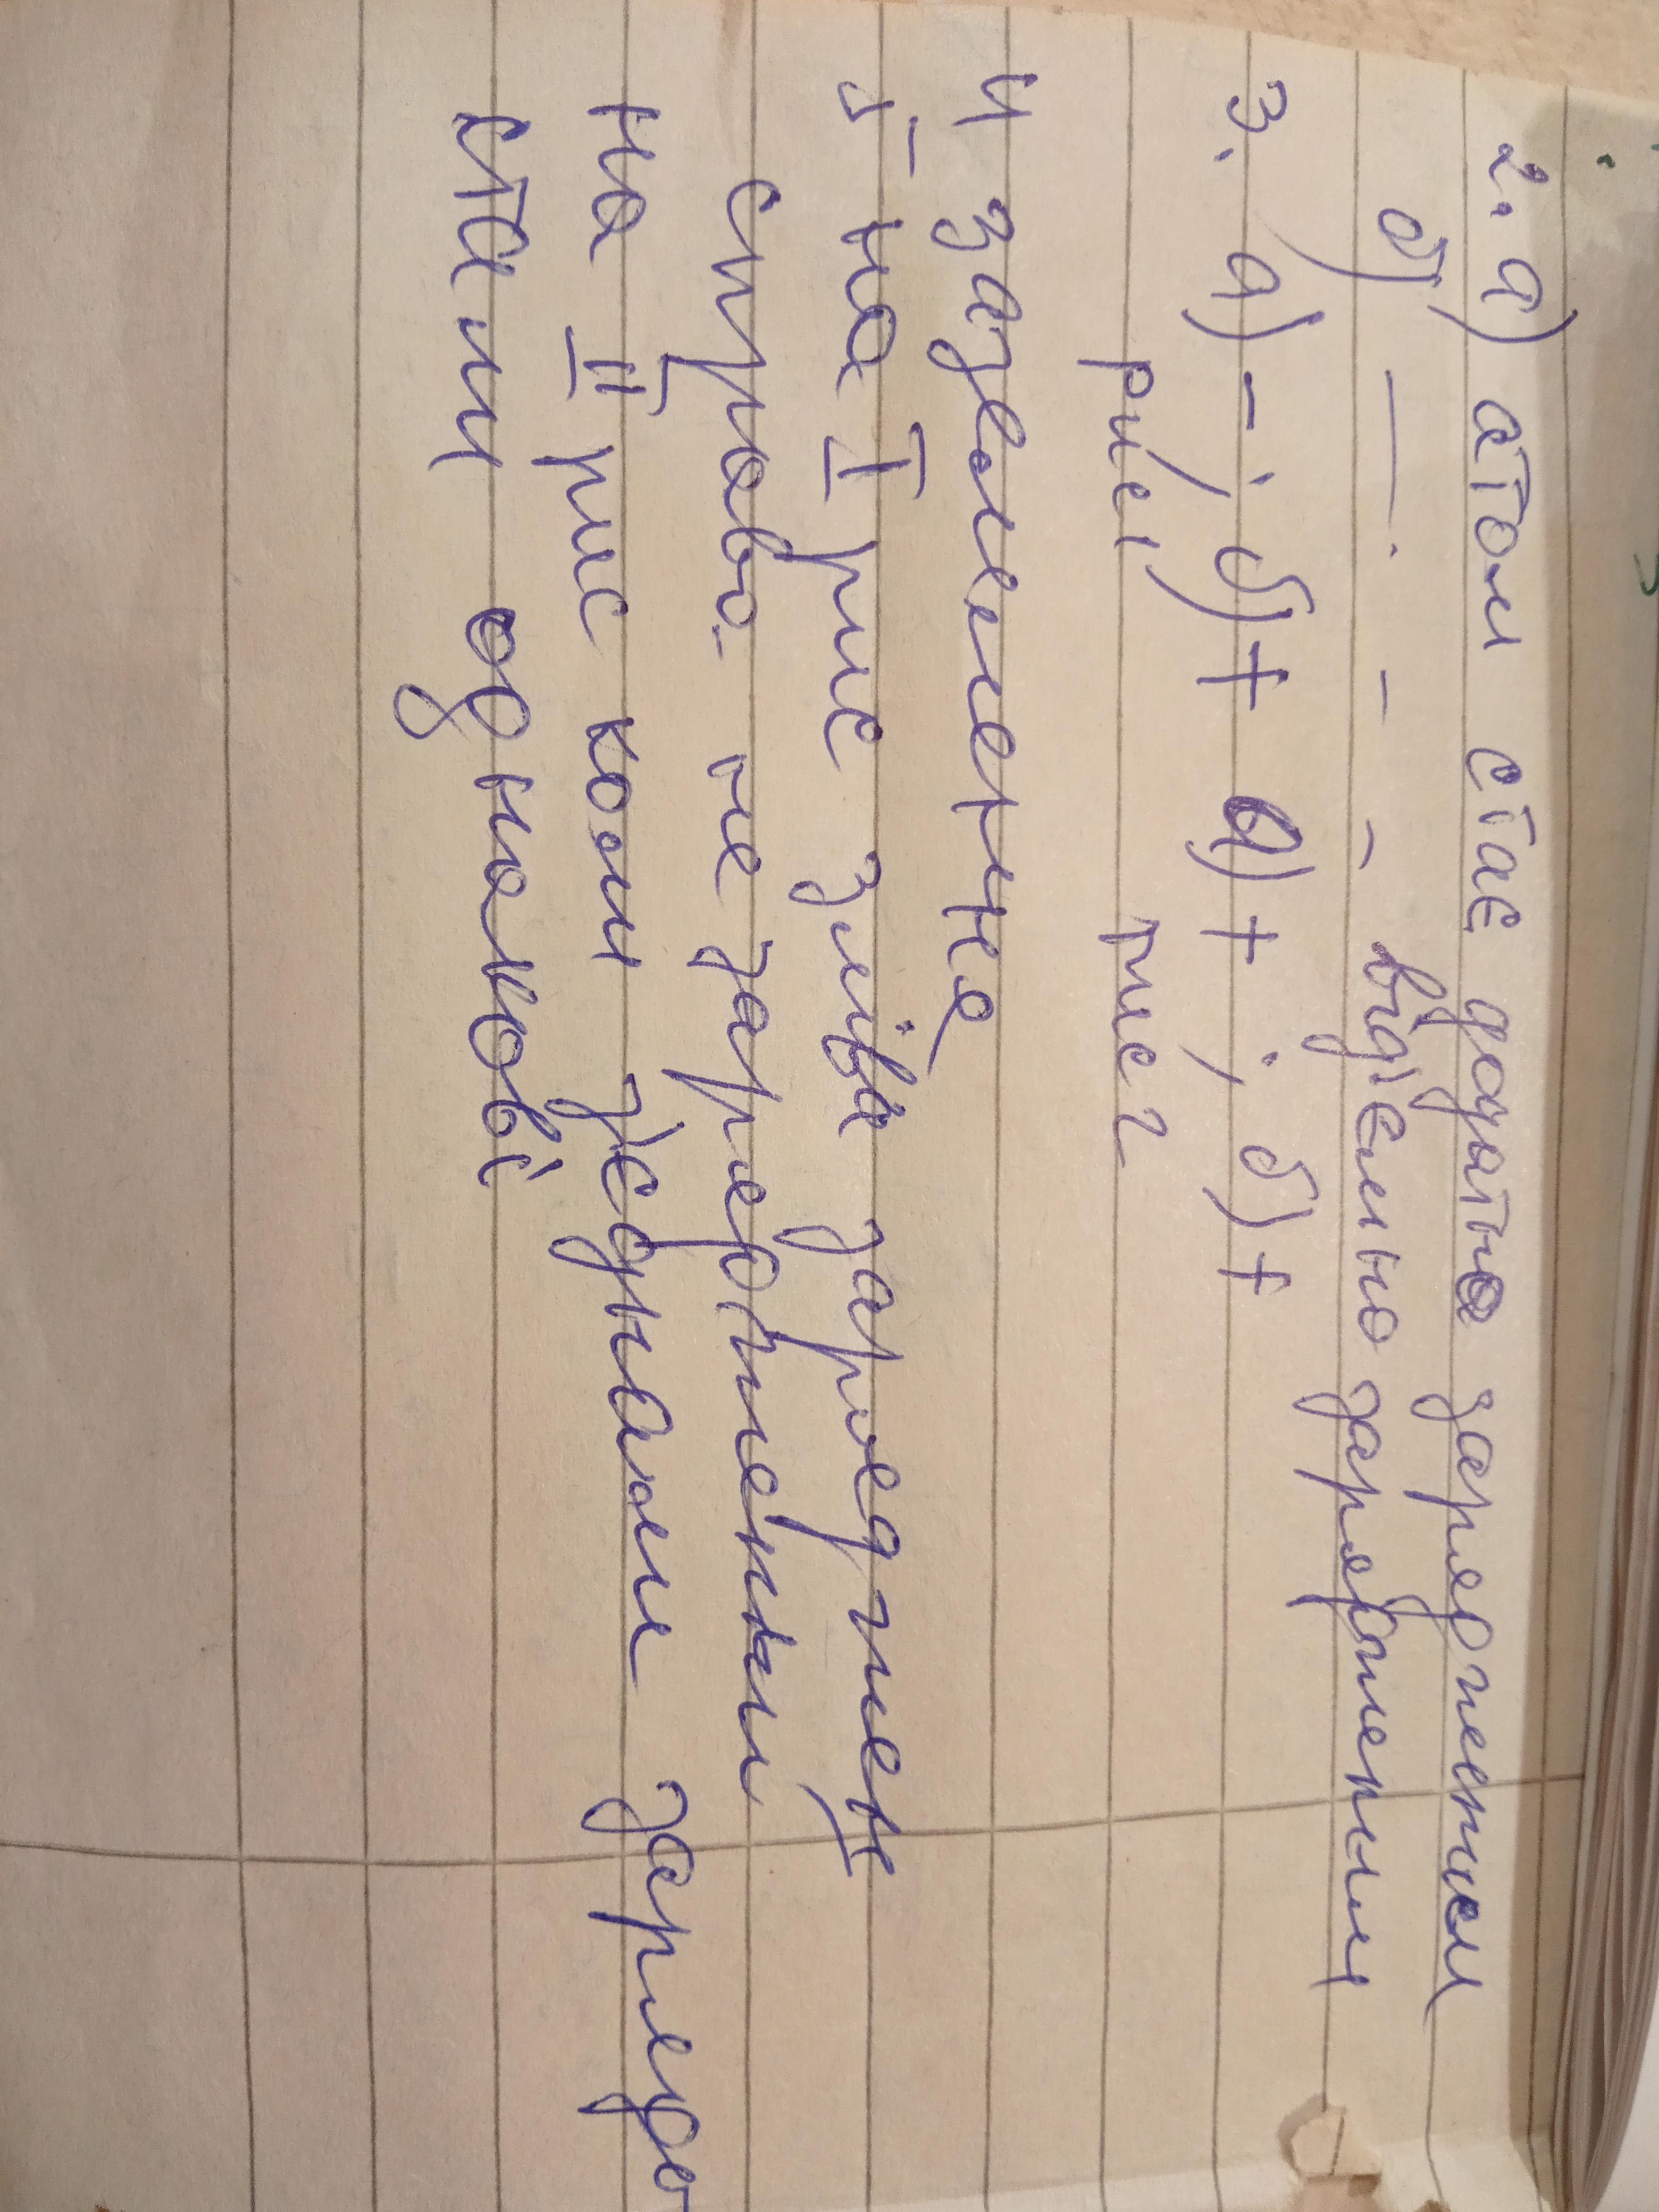 2. а) атом стає додатно зарядженим
б) — . - - від'ємно зарядженим
3. а) - ; б) + а) + ; б) +
рис 1) рис 2
4 заземлення
5 - на I рис зліва заряджен
справо- не заряджений
на II рис коли з'єднали заряди
стали однакові